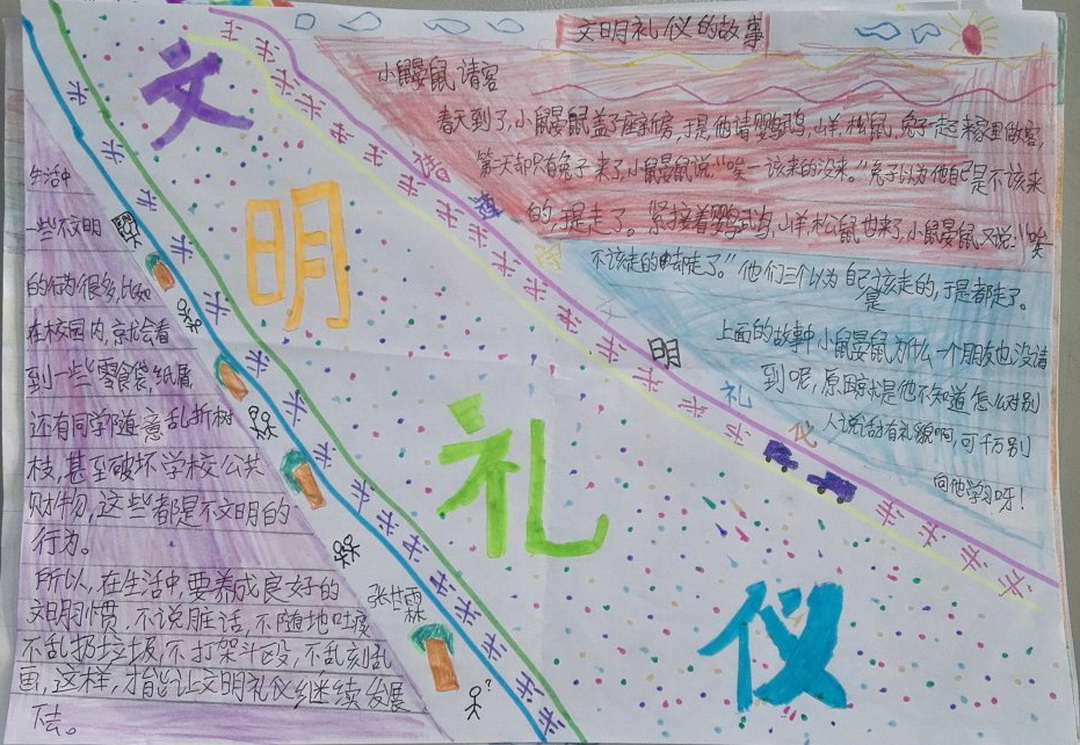 文明礼仪的故事
小鼹鼠请客
春天到了,小鼹鼠盖了座新房,于是他请鹦鹉,山羊,松鼠,兔子一起来家里做客,
第一天却只有兔子来了,小鼹鼠说:“唉一该来的没来。”兔子以为他自己是不该来
的,于是走了。紧接着鹦鹉,山羊,松鼠也来了,小鼹鼠又说:“唉
不该走的却走了。”他们三个以为自己是该走的,于是都走了。
上面的故事中小鼹鼠为什么一个朋友也没请
到呢,原因就是他不知道怎么对别
人说话有礼貌啊,可千万别
向他学习呀!
文
明
礼
仪
明
礼
仪
生活中
一些不文明
的行为很多,比如
在校园内,就会看
到一些零食袋,纸屑
还有同学随意乱折树
枝,甚至破坏学校公共
财物,这些都是不文明的
行为。
所以,在生活中,要养成良好的
文明习惯,不说脏话,不随地吐痰
不乱扔垃圾,不打架斗殴,不乱刻乱
画,这样,才能让文明礼仪继续发展
下去。